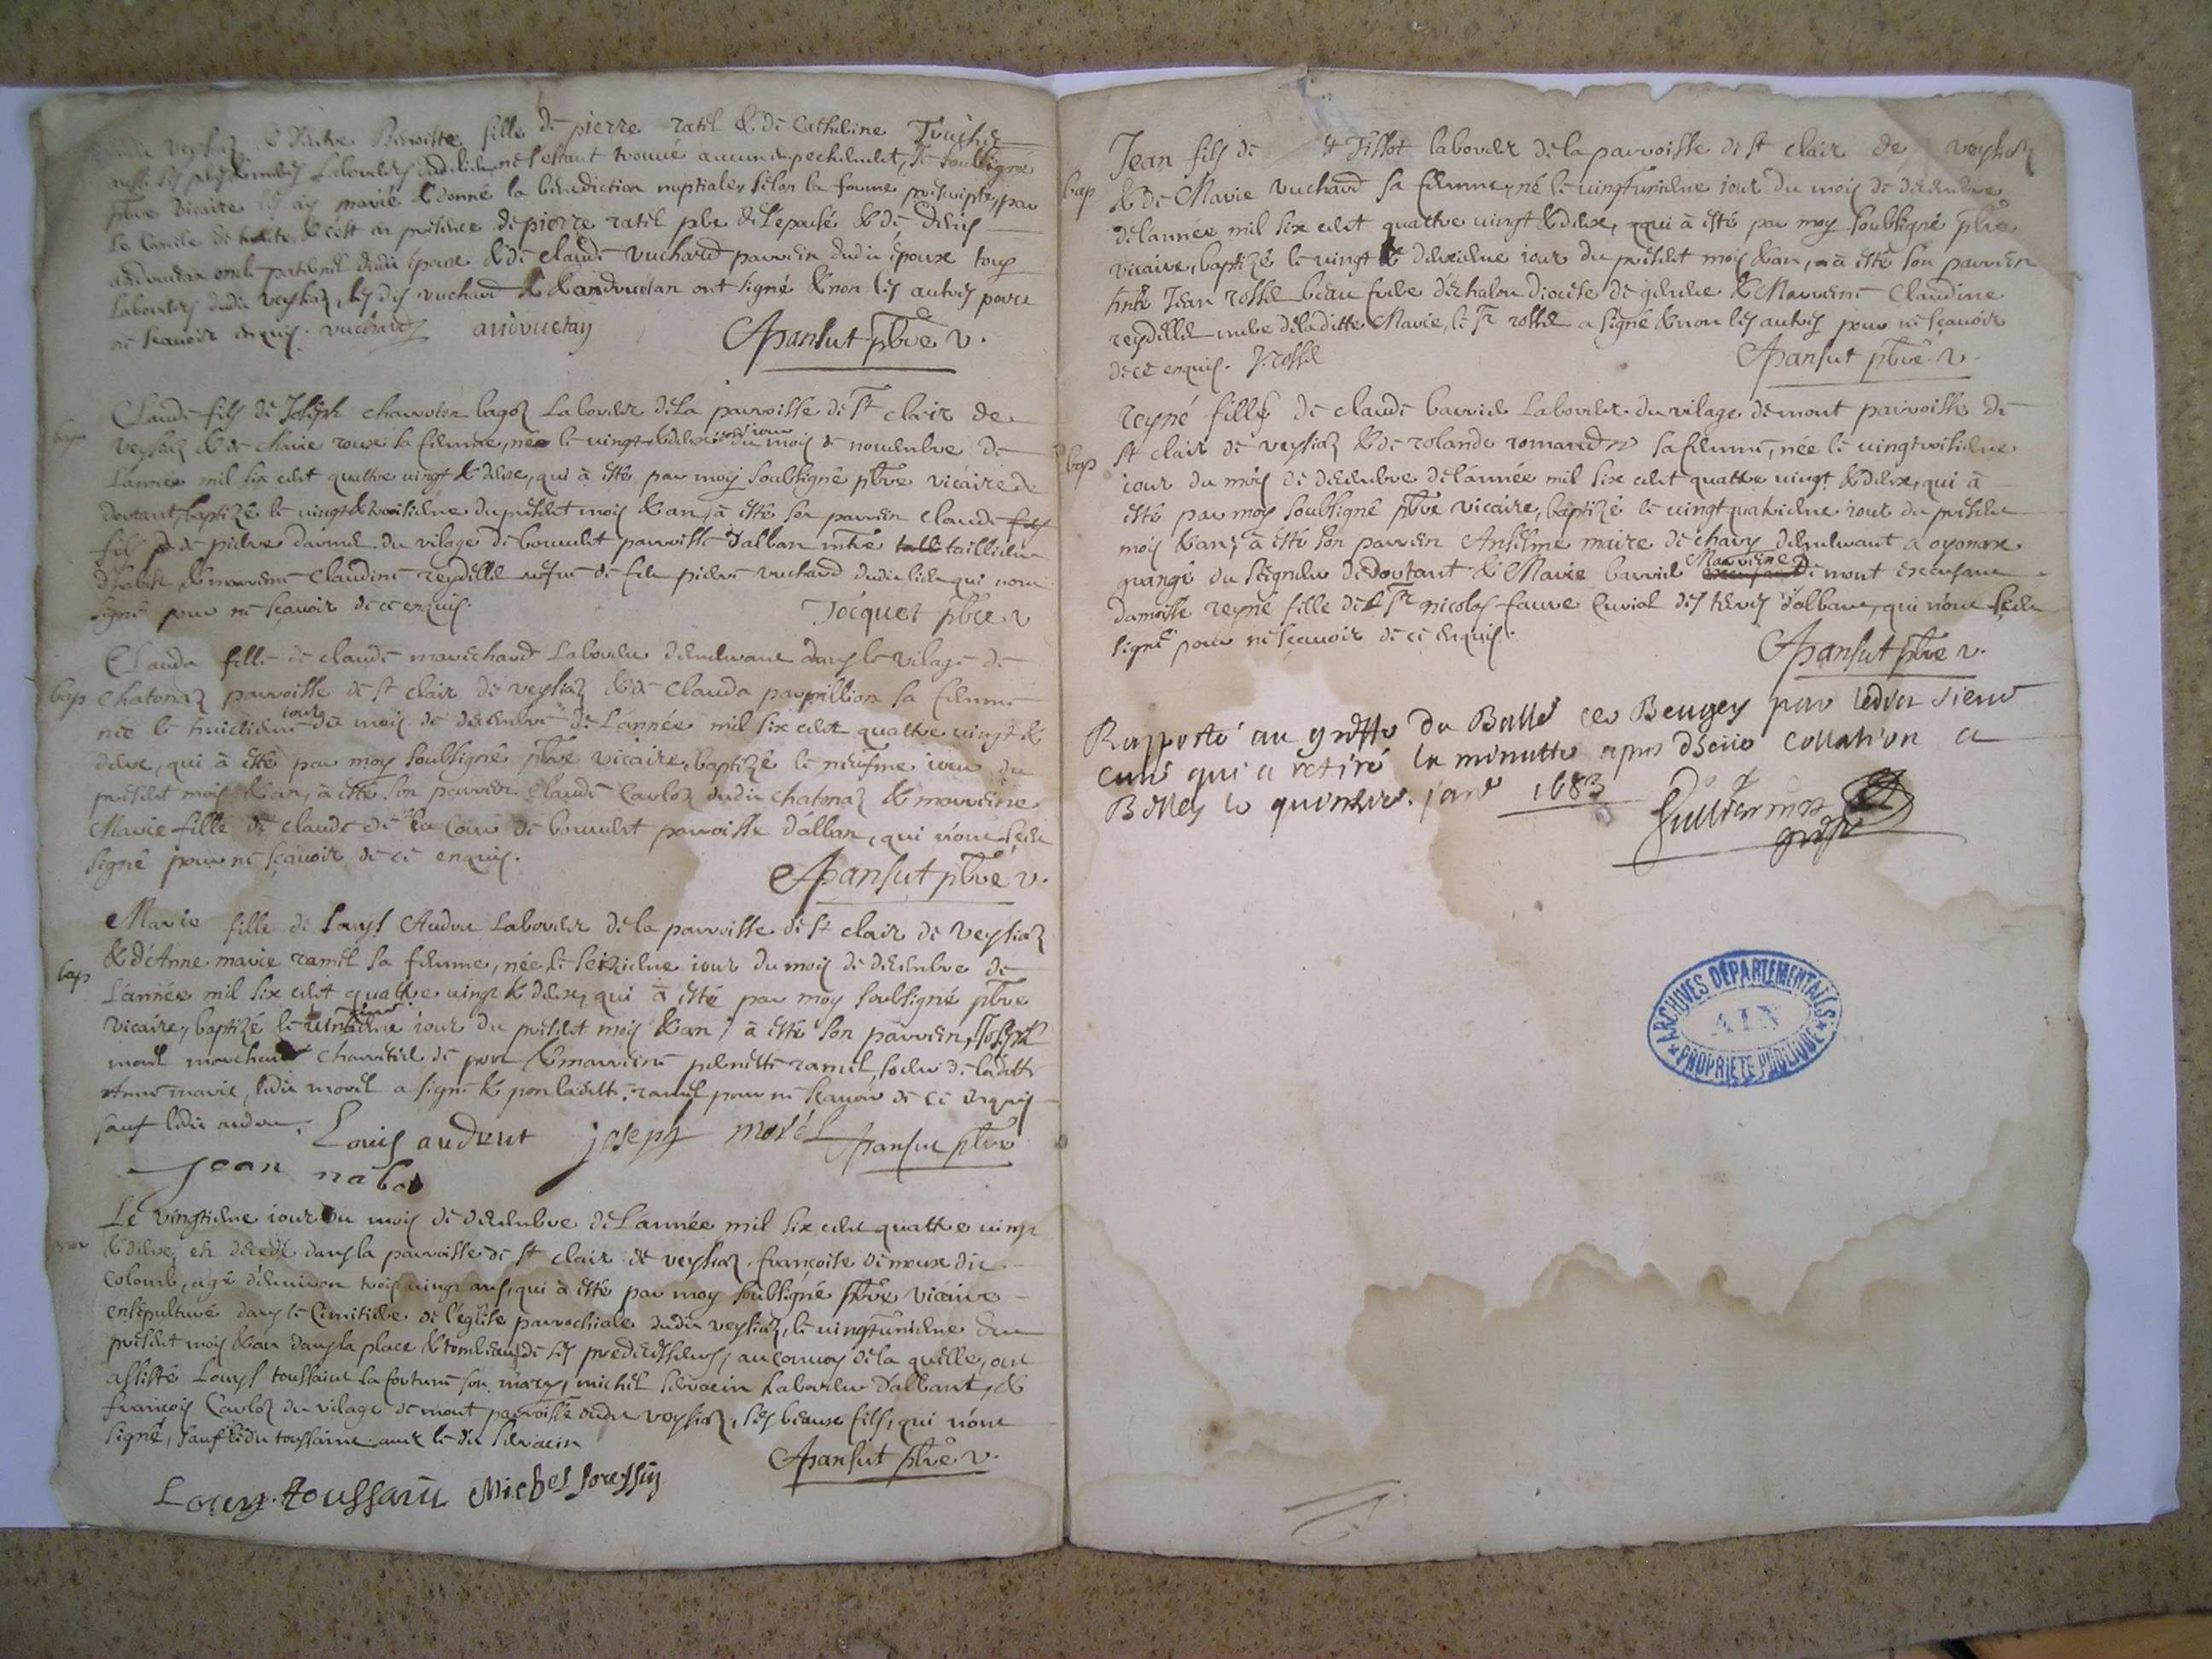 veysiaz & Benoiste fille de pierre ratel & de Catherine
laboureurs dudit lieu ne s'estant trouué aucun empechement, Je soubsigné
pbre vicaire les ay marié & donné la bénédiction nuptiale, selon la forme prescripte, par
le Concile de trente, & c'est en présence de pierre ratel pere de l'epousée & de
andruetan oncle paternel dudit époux & de claude vuchard parrein dudit époux tous
laboureurs dudit veysiaz, les dis vuchard & andruetan ont signé & non les autres pour
ne sçauoir enquis. vuchard andruetan
Apansut pbre v.
bap
Claude fils de Joseph charvoton bagoz Laboureur de la parroisse de St clair de
veysiaz & de Marie roux sa femme, né le vingt & deuxieme iour du mois de nouembre de
L'année mil six cent quattre vingt & deux, qui à esté par moy soubsigné pbre vicaire de
dortant, baptizé le vingt & troisieme du présent mois & an, à esté son parrein claude fils
fils de pierre du vilage de bouuent parroisse d'alban mtre taillieur
d'habits, & marreine claudine reydellet vefue de feu pierre vuchard dudit lieu qui nont
signé pour ne sçauoir de ce enquis.
Jocquet pbre v
bap
Clauda fille de claude marechard Laboureur demeurant dans le vilage de
Chatonaz parroisse de st clair de veysiaz & de Clauda parpillion sa femme
née le huictieme iour du mois de decembre de L'année mil six cent quattre vingt &
deux, qui à esté par moy soubsigné pbre vicaire, baptizé le neufme iour du
présent mois & an, à esté son parrein claude Carloz dudit chatonaz & marreine
Marie fille de claude de la Cour de bouuent parroisse d'alban, qui n'ont sceu
signé pour ne sçauoir de ce enquis.
Apansut pbre v.
bap
Marie fille de Louys Audru Laboureur de la parroisse de st clair de Veysiaz
& d'Anne marie ramel sa femme, née le seizieme iour du mois de decembre de
L'année mil six cent quattre vingt & deux, qui à esté par moy soubsigné pbre
vicaire, baptizé le iour du présent mois & an, à esté son parrein, Joseph
morel marchand de & marreine pernette ramel, soeur de laditte
Anne marie, ledit morel a signé & non laditte ramel pour ne sçauoir de ce enquis
sauf ledit audru. Louis audrut joseph morel Apansut pbre
Jean nabo
Le vingtieme iour du mois de decembre de L'année mil six cent quattre vingt
& deux, est décédé dans la parroisse de st clair de veysiaz françoise demoux dit
Colomb, agé d'enuiron trois vingt ans, qui à esté par moy soubsigné pbre vicaire
ensépulturé dans le Cimitiere de l'église parrochiale dudit veysiaz, le vingt unieme du
présent mois & an dans la place & tombeau de ses predecesseurs, au conuoy de la quelle, ont
assisté Louys toussaint la fortune son mary, michel laboureur d'albant, &
françois Carloz du vilage de mont parroisse dudit veysiaz, ses beaux fils, qui n'ont
signé, sauf ledit toussaint auec le dit
Apansut pbre v.
Louys toussaint Michel
bap
Jean fils de Tissot laboureur de la parroisse de st clair de veysiaz
& de Marie vuchard sa femme, né le vingt unieme iour du mois de decembre
de l'année mil six cent quattre vingt & deux, qui à esté par moy soubsigné pbre
vicaire, baptizé le vingt & deuxieme iour du présent mois & an, à esté son parrein
Jean rossel beau frere d'échalon diocèse de geneue & Marreine Claudine
reydellet mere de laditte Marie, le Sr rossel a signé & non les autres pour ne sçauoir
de ce enquis. J. rossel
Apansut pbre. v.
bap
reyné fille de claude barriel Laboureur du vilage de mont parroisse de
st clair de veysiaz & de rolande romand sa femme, née le vingt troisieme
iour du mois de decembre de l'année mil six cent quattre vingt & deux, qui à
esté par moy soubsigné pbre vicaire, baptizé le vingt quatrieme iour du présent
mois & an, à esté son parrein Ansélme maire de demeurant a oyonax
grangé du seigneur de dortant & Marie barriel Marreine de mont
damoiselle reyné fille de Sr nicolas faure Curial des terres d'alban, qui n'ont sceu
signé pour ne sçauoir de ce enquis.
Apansut pbre v.
Rapporté au greffe du Balliage de Beugey par ledit sieur
curé qui a retiré la minutte apres deüe collation a
Belley le quinzie. janr 1683
greffr
ARCHIVES DÉPARTEMENTALES
AIN
PROPRIÉTÉ PUBLIQUE